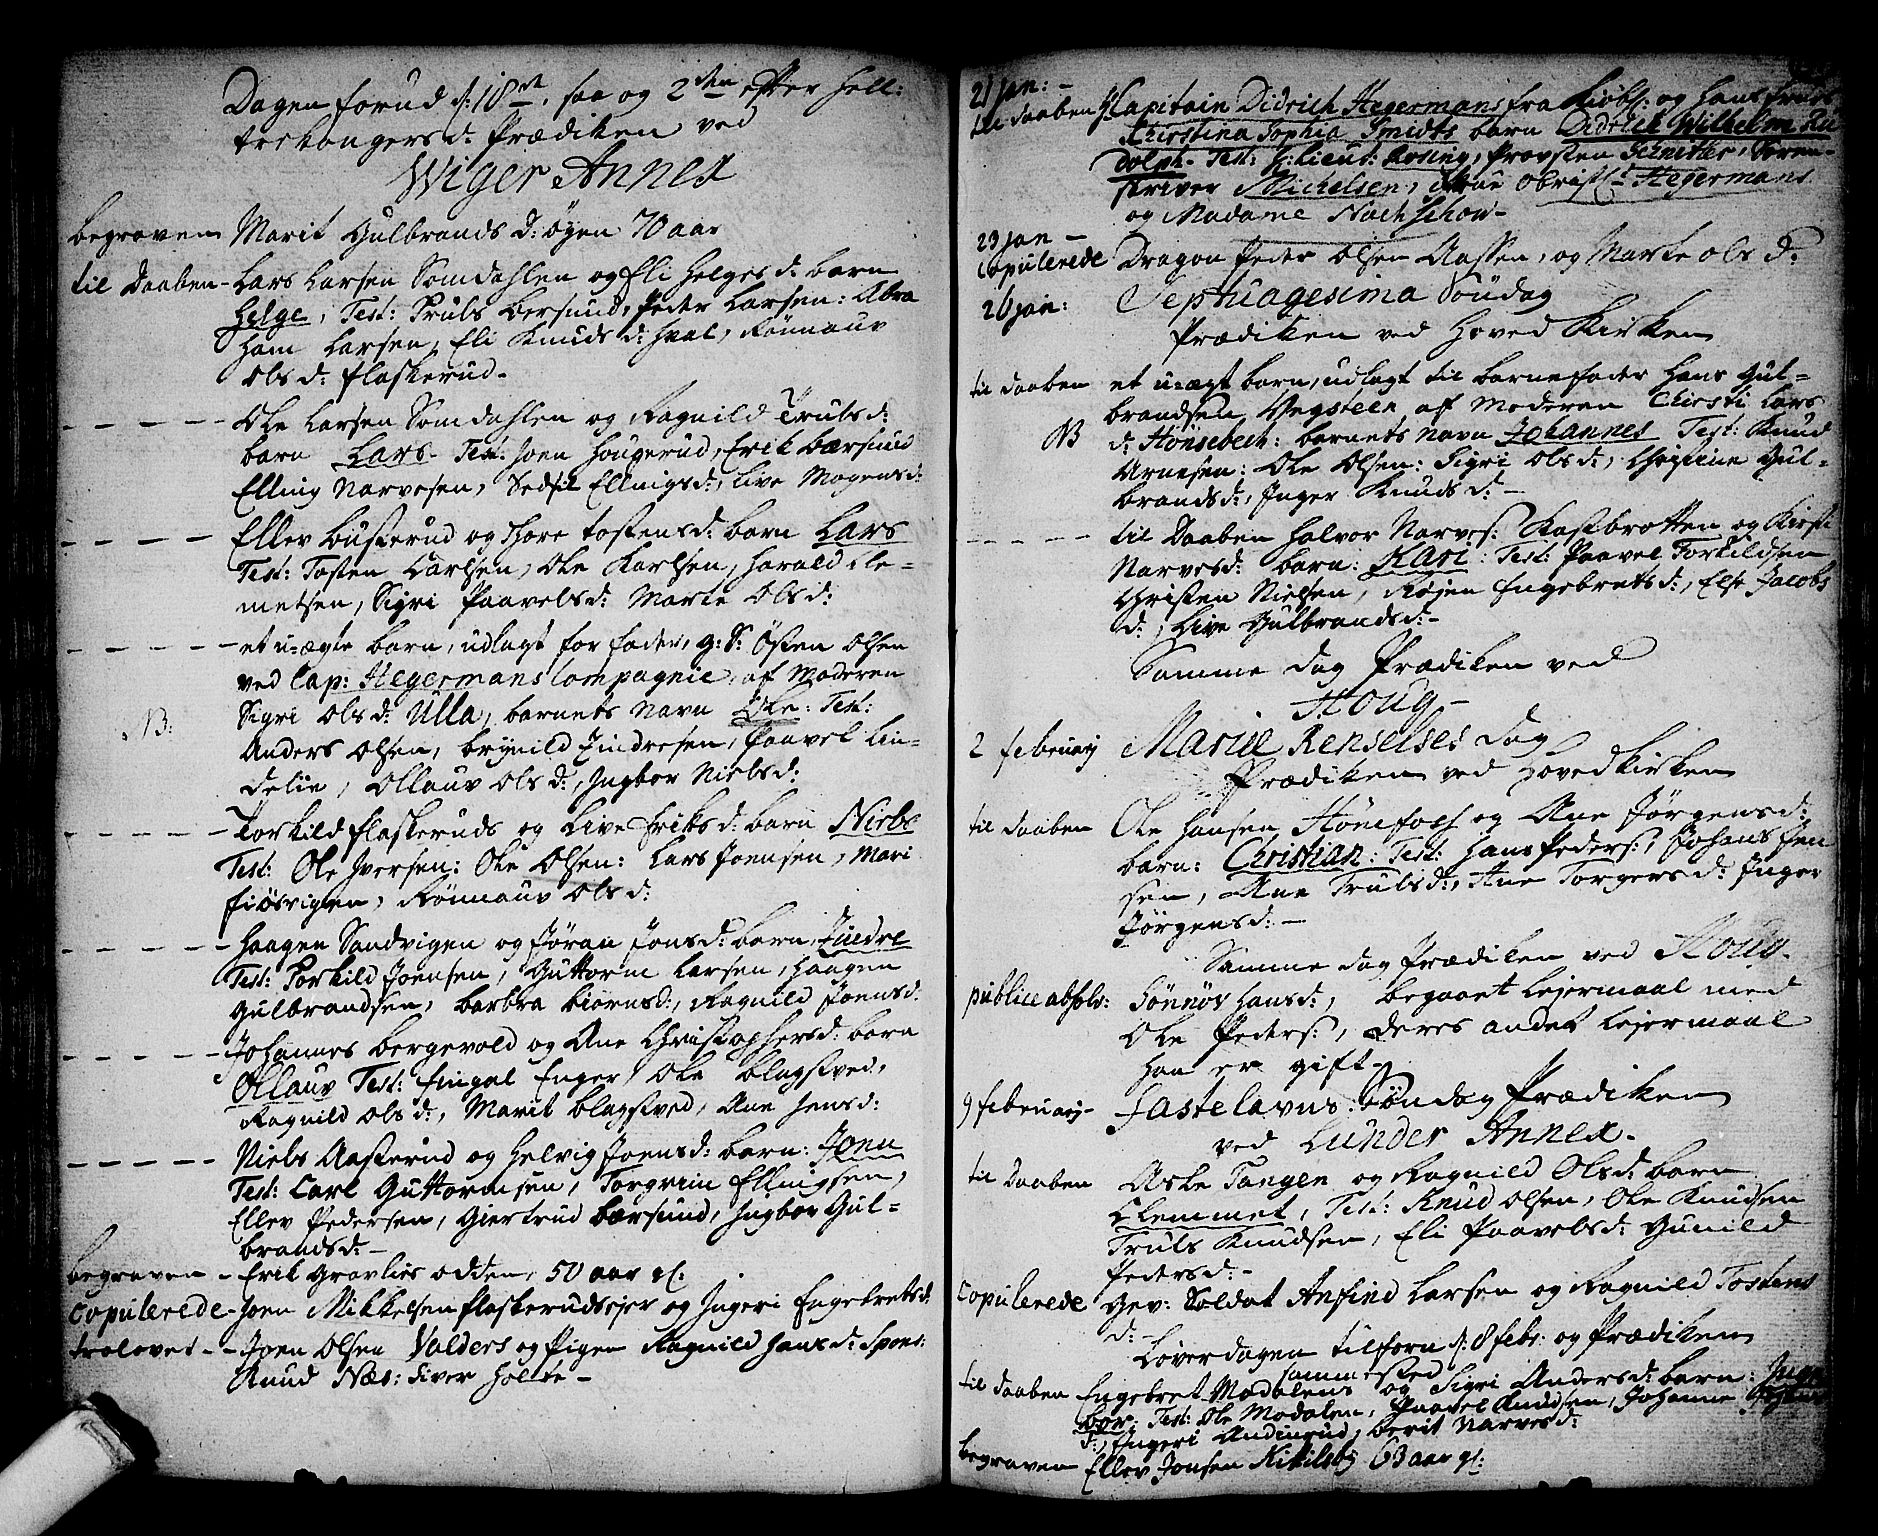 Dagen forud d: 18de, saa og 2den effter Hell:
trekongers d: Prædiken ved
Wiger Annex
begraven Marit Gulbrands d: Øgen 70 aar
til Daaben - Lars Larsen Somdahlen og Eli Helges d: barn
Helge, Test: Truls Bersund, Peder Larsen: Abra
ham Larsen, Eli Knuds d: Hval, Rønnauv
Ols d: Flaskerud -
Ole Larsen Somdahlen og Ragnild Truls d:
barn Lars - Test: Joen Hougerud, Erik Bærsund
Elling Narvesen, Sedsil Ellings d:, Live Mogens d:
Ellev Busterud og Thore Tostens d: barn Lars
Test: Tosten Carlsen, Ole Karlsen, Harald Cle-
metsen, Sigri Paavels d: Marte Ols d:
et u-ægte barn, udlagt for fader, g: S: Østen Olsen
ved Cap: Hegermans Compagnie, af Moderen
NB: Sigri Ols d: Ulla, barnets Navn Ole: Test:
Anders Olsen, Brynild Zindresen, Paavel Lin-
delie, Ollauv Ols d:, Ingbor Niels d:
Torkild Flaskeruds og Live Eriks d: barn Niels
Test: Ole Iversen: Ole Olsen: Lars Joensen, Mari
Fiøsvigen, Rønnauv Ols d:
Haagen Sandvigen og Jøran Jons d: barn Zindre
Test: Torkild Joensen, Guttorm Larsen, Haagen
Gulbrandsen, Barbra Biørns d:, Ragnild Joens d:
Johannes Bergevold og Ane Christophers d: barn
Ollauv Test: Fingal Enger, Ole Blagstved,
Ragnild Ols d:, Marit Blagstved, Ane Jens d:
Niels Aasterud og Helvig Joens d: barn: Jonn
Test: Carl Guttormsen, Torgrim Ellingsen,
Ellev Pedersen, Giertrud Bærsund, Ingbor Gul-
brands d: -
begraven - Erik Gravlies Odden, 50 aar gl:
Copulerede - Joen Mikkelsen Flaskerudeier og Ingeri Engebrets d:
trolovet - - Joen Olsen Valders og Pigen Ragnild Hans d: Spons:
Knud Næs: Siver Holte -
21 Jan: -
til daaben H: Capitain Didrich Hegermans fra Kiøb: og Hans Frues
Christina Sophia Smidts barn Didrich Wilhelm Ru
dolph - Test: H: Lieut: Rosing, Provsten Schnitler, Soren-
skriver Michelsen, Frue Obristl: Hegermans
og Madame Nachschow -
23 Jan -
Copulerede Dragon Peder Olsen Aassen, og Marte Ols d:
26 Jan: Septuagesima Søndag
Prædiken ved Hoved Kirken
til daaben et u-ægt barn, udlagt til barnefader Hans Gul-
brandsen Vegsteen, af Moderen Chirsti Lars
NB d: Hønsebech: barnets Navn Johannes Test: Knud
Arnesen: Ole Olsen: Sigri Ols d:, Christine Gul-
brands d:, Inger Knuds d: -
til Daaben Halvor Narves: Kastbrotten og Kirsti
Narves d: barn: Kari: Test: Paavel Torkildsen
Christen Nielsen, Røjen Engebrets d:, Else Jacobs
d:, Live Gulbrands d: -
Samme dag Prædiken ved
Houg -
2 February Mariæ Renselses dag
Prædiken ved Hovedkirken
til daaben Ole Hansen Hønefoss og Ane Jørgens d:
barn: Christian: Test: Hans Peders:, Johans Jen
sen, Ane Truls d:, Ane Torgers d: Inger
Jørgens d: -
Samme dag Prædiken ved Houg -
publice absolv: Sønnøv Hans d:, begaaet Lejermaal med
Ole Peders:, deres andet Lejermaal
han er gift -
9 February - Fastelavns Søndag Prædiken
ved Lunder Annex -
til daaben Aske Tangen og Ragnild Ols d: barn
Clemmet, Test: Knud Olsen, Ole Knudsen
Truls Knudsen, Eli Paavels d: Gunild
Peders d: -
Copulerede Gev: Soldat Anfind Larsen og Ragnild Tostens
d: -
Løverdagen tilforn d: 8 Feb: og Prædiken
sammested
til daaben Engebret Modalens og Sigri Anders d: barn: Ing
bor: Test: Ole Modalen, Paavel Knudsen, Johanne
d:, Ingeri Andinrud, Berit Narves d:
begraven Ellev Jonsen Kittilsby 63 aar gl: